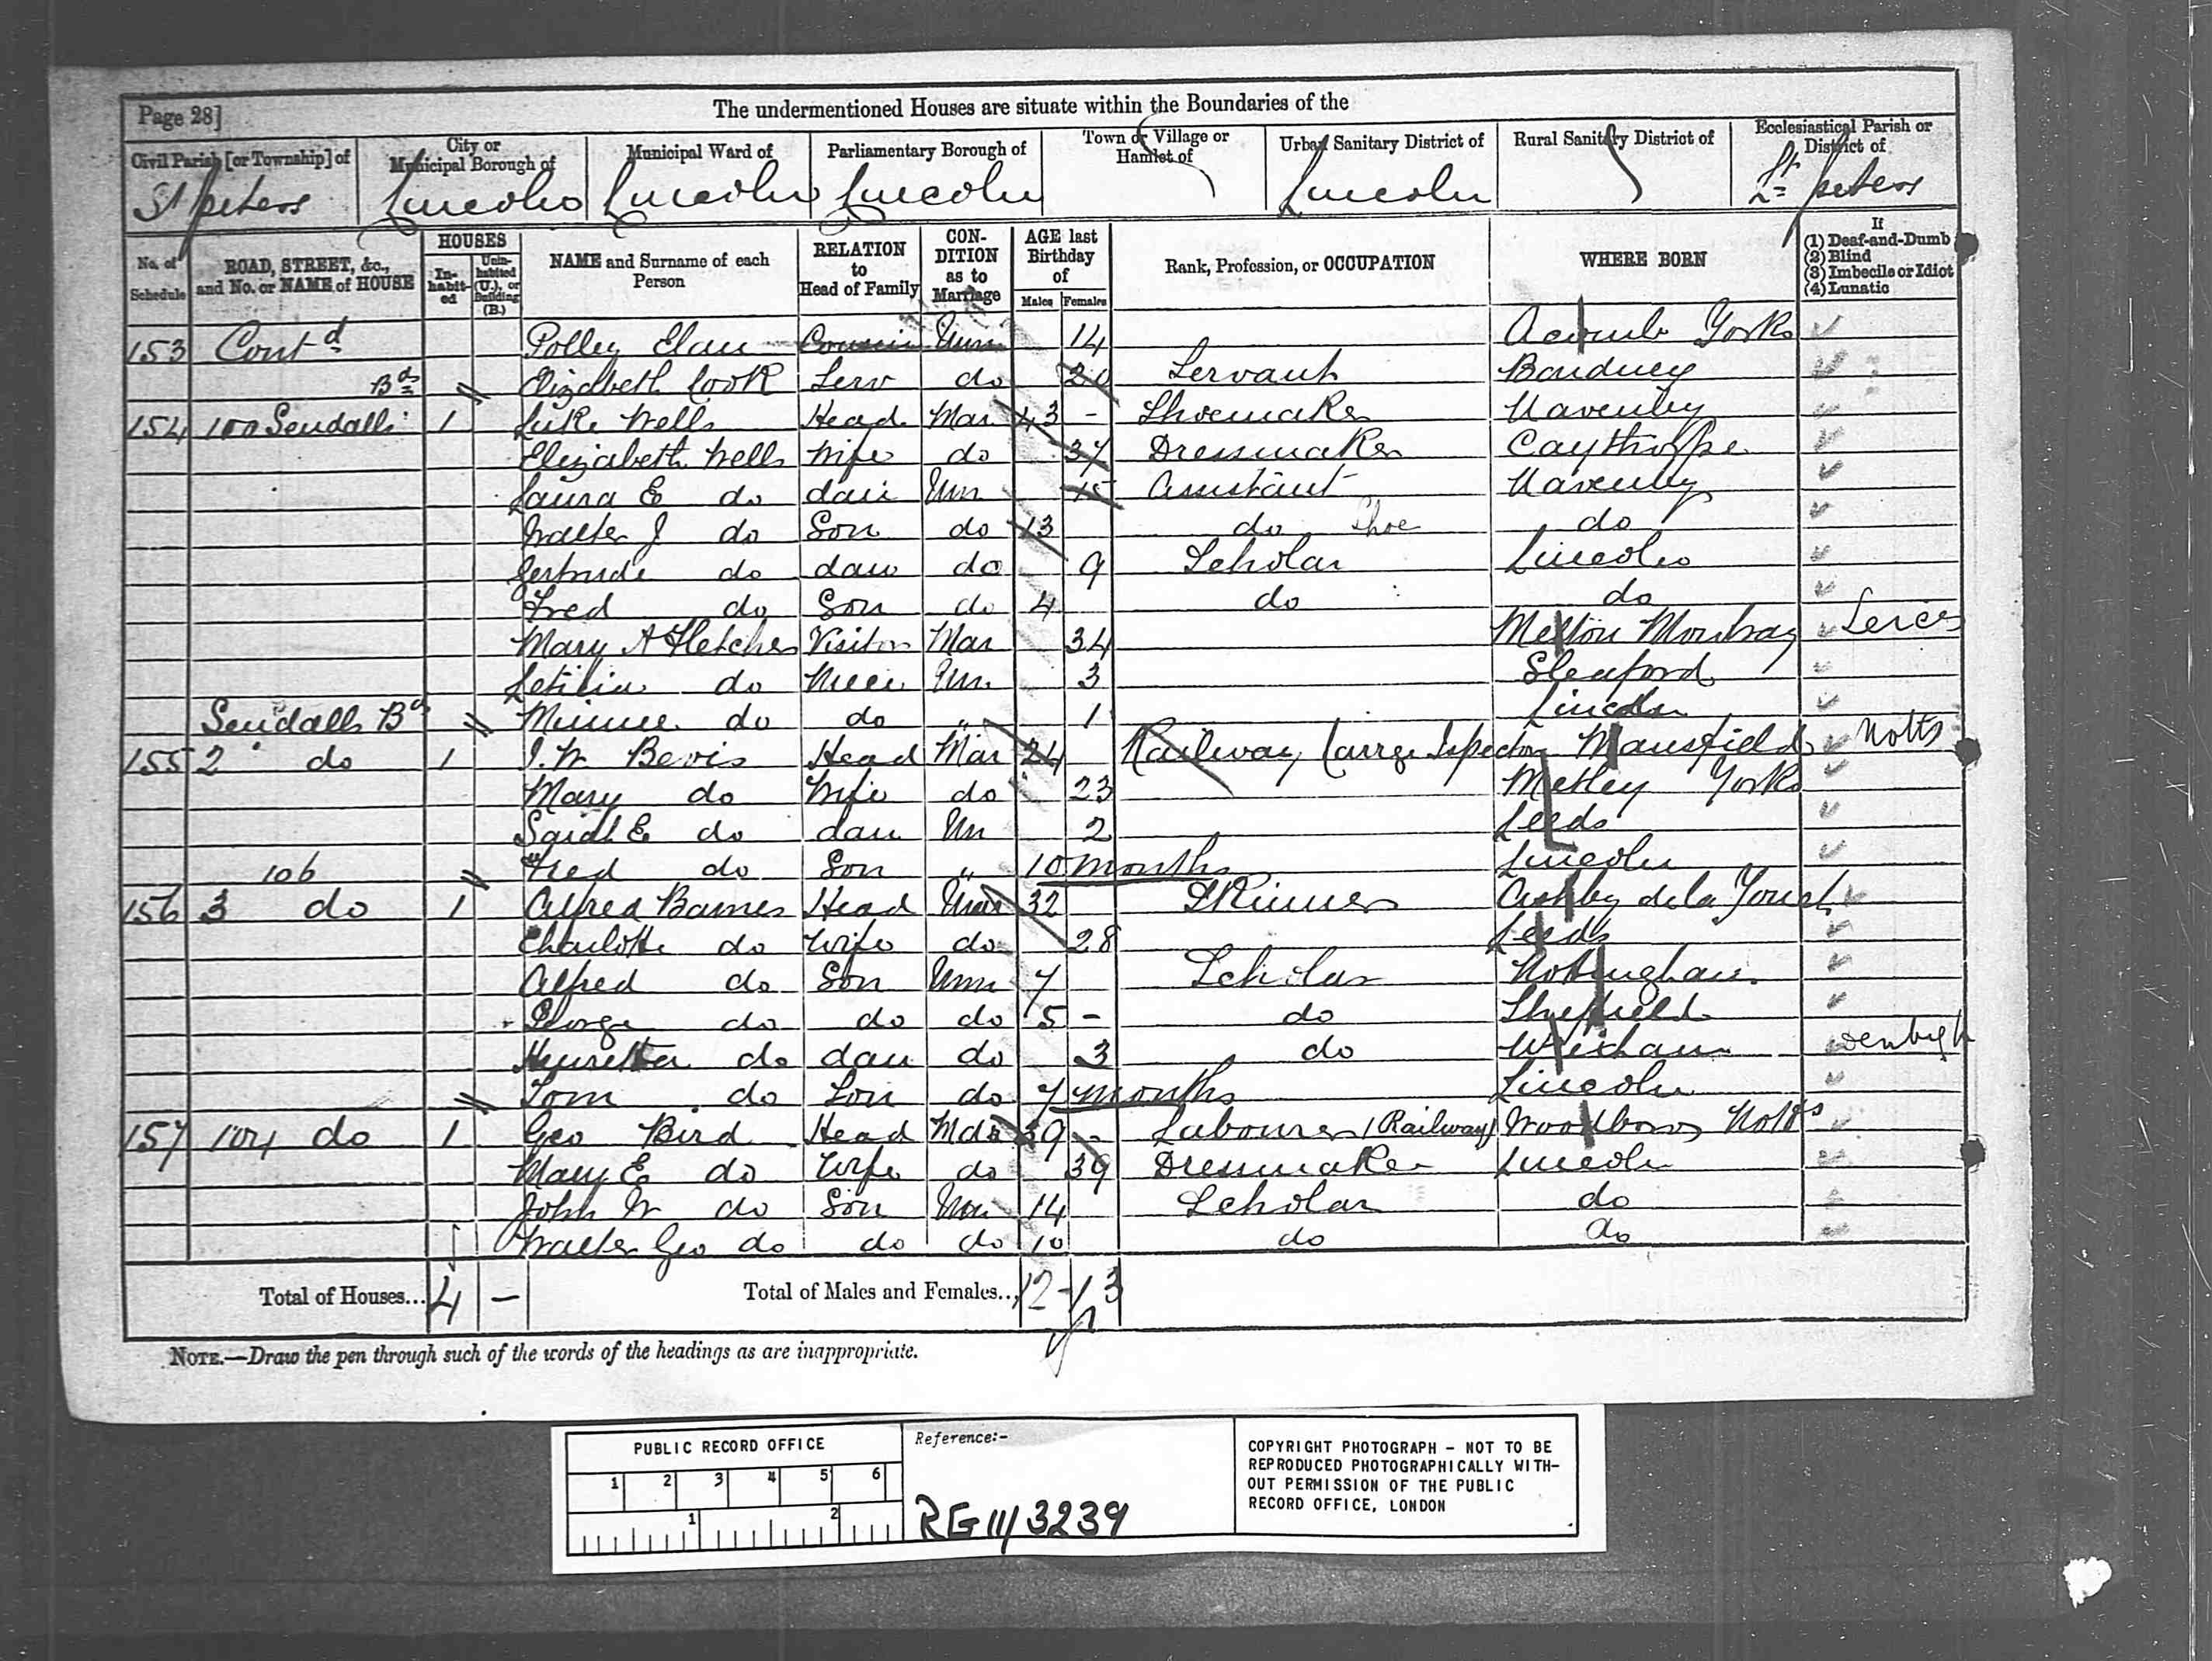 Page 28]
The undermentioned Houses are situate within the Boundaries of the
Civil Parish [or Township] of
City or Municipal Borough of
Municipal Ward of
Parliamentary Borough of
Town or Village or Hamlet of
Urban Sanitary District of
Rural Sanitary District of
Ecclesiastical Parish or District of
St peters Lincoln Lincoln Lincoln Lincoln St peters
No. of Schedule
ROAD, STREET, &c., and No. or NAME of HOUSE
HOUSES
In-habit-ed
Unin-habited (U.), or Building (B.)
NAME and Surname of each Person
RELATION to Head of Family
CON-DITION as to Marriage
AGE last Birthday of
Males Females
Rank, Profession, or OCCUPATION
WHERE BORN
If
(1) Deaf-and-Dumb
(2) Blind
(3) Imbecile or Idiot
(4) Lunatic
153 Contd Polley Cousin Unm 14 Acomb Yorks
Elizabeth Cook Serv do 20 Servant Bardney
Bds
154 100 Sendalls 1 Luke Wells Head Mar 43 - Shoemaker Navenby
Elizabeth Wells Wife do 37 Dressmaker Caythorpe
Laura E do dau Unm 15 Assistant Navenby
Walter J do Son do 13 do Shoe do
Gertrude do dau do 9 Scholar Lincoln
Fred do Son do 4 do do
Mary A Fletcher Visitor Mar 34 Melton Mowbray Leices
Letitia do Niece Un 3 Sleaford
Sendalls Bds Minnie do do " 1 Lincoln
155 2 do 1 J. W Bevis Head Mar 24 Railway Carrge Ispector Mansfield Notts
Mary do Wife do 23 Metley Yorks
Sarah E do dau Un 2 Leeds
106 Fred do Son " 10 months Lincoln
156 3 do 1 Alfred Barnes Head Mar 32 Skinner Ashby de la Zouch
Charlotte do Wife do 28 Leeds
Alfred do Son Unm 7 Scholar Nottingham
George do do do 5 - do Sheffield
Henretta do dau do 3 do Wrexham Denbigh
Tom do Son do 7 months Lincoln
157 107 do 1 Geo Bird Head Mar 39 - Labourer (Railway) Notts
Mary E do Wife do 39 Dressmaker Lincoln
John W do Son Unm 14 Scholar do
Walter Geo do do do 10 do do
Total of Houses... 4 - Total of Males and Females... 12 - 13
NOTE.—Draw the pen through such of the words of the headings as are inappropriate.
PUBLIC RECORD OFFICE
1 2 3 4 5 6
1 2
Reference:-
RG 11/3239
COPYRIGHT PHOTOGRAPH - NOT TO BE
REPRODUCED PHOTOGRAPHICALLY WITH-
OUT PERMISSION OF THE PUBLIC
RECORD OFFICE, LONDON